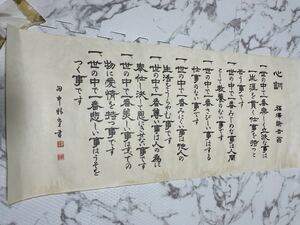 心訓　福澤諭吉翁
一世の中で一番楽しく立派な事は
一生涯を貫く仕事を持つと
云う事です
一世の中で一番みじめな事は人間
として教養のない事です
一世の中で一番さびしい事はする
仕事のない事です
一世の中で一番みにくい事は他人の
生活をうらやむ事です
一世の中で一番尊い事は人の為に
奉仕し決して恩にきせない事です
一世の中で一番美しい事はすべての
物に愛情を持つ事です
一世の中で一番悲しい事はうそを
つく事です
書